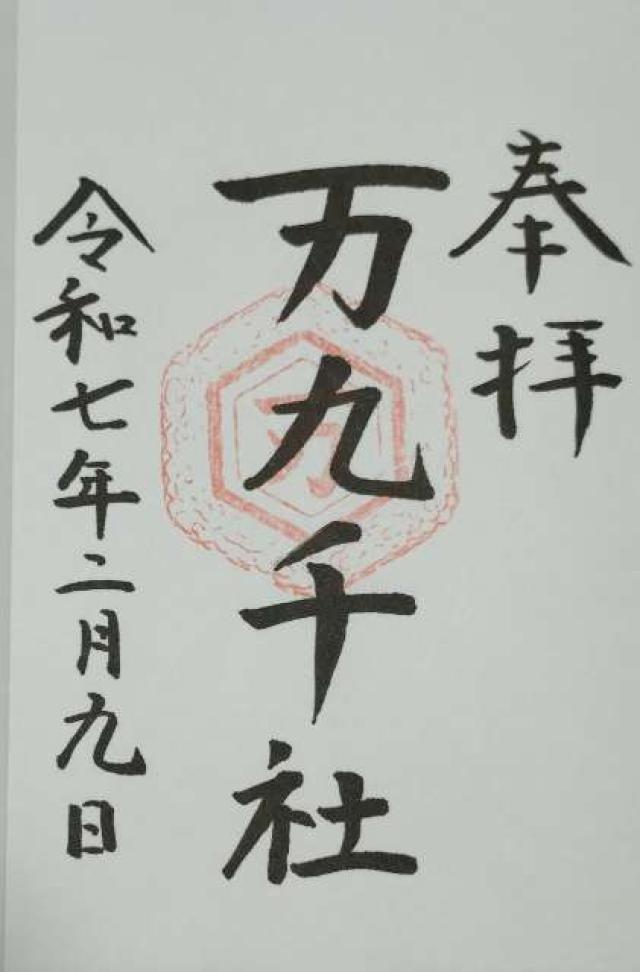 奉拝
万九千社
万
令和七年二月九日